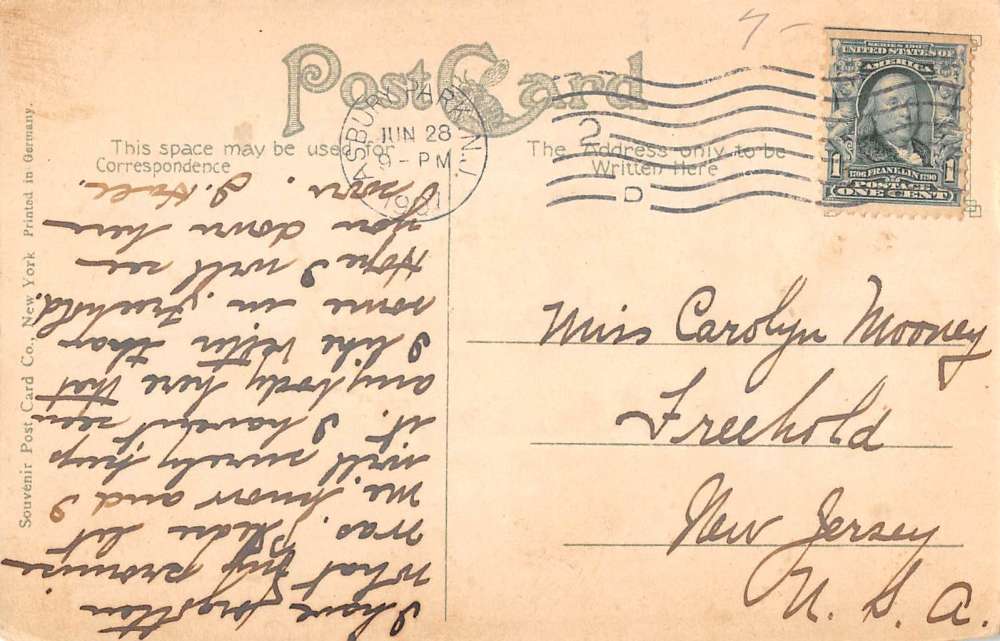 Post Card
ASBURY PARK, N.J.
JUN 28
9-PM
1907
2
D
SERIES 1902
UNITED STATES OF
AMERICA
1 1706 FRANKLIN 1790 1
POSTAGE
ONE CENT
This space may be used for
Correspondence
The Address only to be
Written Here
Miss Carolyn Mooney
Freehold
New Jersey
U. S. A.
I have forgotten
what my promise
was. Please let
me know and I
will surely keep
it. I haven't seen
anybody here that
I like better than
some in Freehold.
Hope I will see
you down here
soon.
Souvenir Post Card Co., New York Printed in Germany.